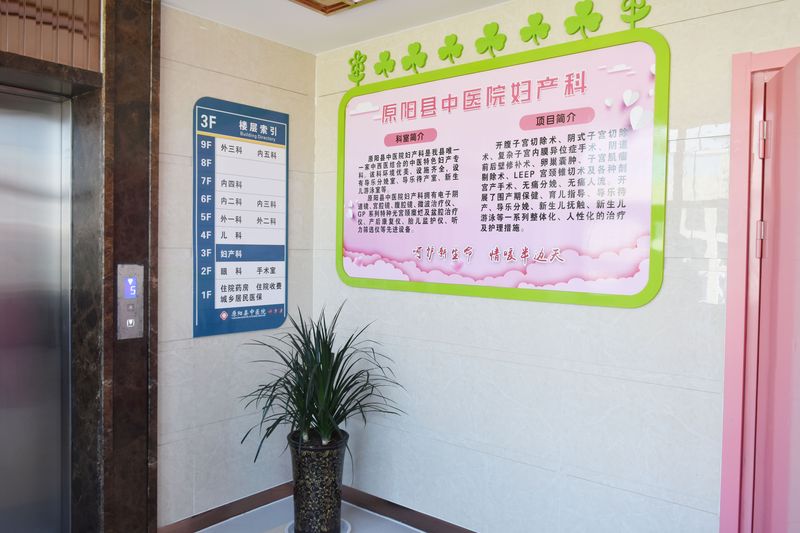 3F 楼层索引
Building Directory
9F 外三科 内五科
8F
7F 内四科
6F 内二科 内三科
5F 外一科 外二科
4F 儿科
3F 妇产科
2F 眼科 手术室
1F 住院药房 住院收费
城乡居民医保
原阳县中医院
5
原阳县中医院妇产科
科室简介
原阳县中医院妇产科是我县唯一
一家中西医结合的中医特色妇产专
科，该科环境优美、设施齐全、设
有导乐分娩室、导乐待产室、新生
儿游泳室等。
原阳县中医院妇产科拥有电子阴
道镜、宫腔镜、腹腔镜、微波治疗仪、
GP系列特种光宫颈糜烂及盆腔治疗
仪、产后康复仪、胎儿监护仪、听
力筛选仪等先进设备。
项目简介
开腹子宫切除术、阴式子宫切除
术、复杂子宫内膜异位症手术、阴道
前后壁修补术、卵巢囊肿、子宫肌瘤
剔除术、LEEP宫颈锥切术及各种剖
宫产手术、无痛分娩、无痛人流。开
展了围产期保健、育儿指导、导乐待
产、导乐分娩、新生儿抚触、新生儿
游泳等一系列整体化、人性化的治疗
及护理措施。
呵护新生命 情暖半边天